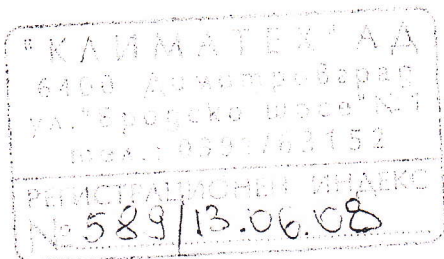 "КЛИМАТЕХ" АД
6400 Димитровград
ул. "Бродско шосе" № 1
тел.: 0391/63152
РЕГИСТРАЦИОНЕН ИНДЕКС
№ 589/13.06.08